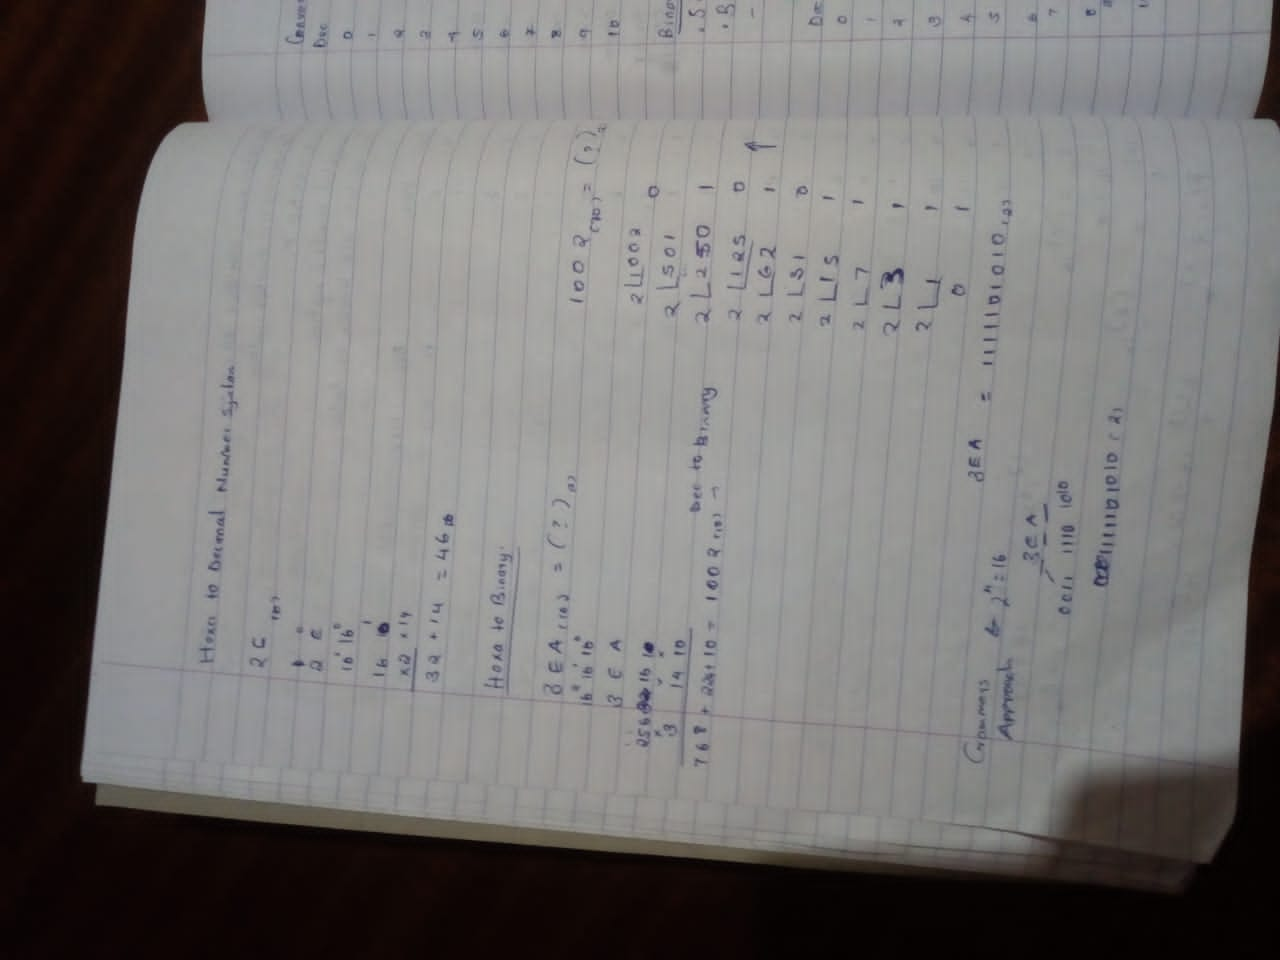 Hexa to Decimal Number System
2C (16)
1 0
2 C
16¹ 16⁰
16 1
x2 x 14
32 + 14 = 46 10
Hexa to Binary:
3EA (16) = (?) (2)
16² 16¹ 16⁰
3 E A
256 16 1
3 14 10
768 + 224 + 10 = 1002 (10) → Dec to Binary
1002 (10) = (?) 2
2 1002
2 501 0
2 250 1
2 125 0
2 62 1 ↑
2 31 0
2 15 1
2 7 1
2 3 1
2 1 1
0 1
3EA = 1111101010 (2)
Approach 2ⁿ = 16
3EA
0011 1110 1010
1111101010 (2)
Dec
0
1
2
3
4
5
6
7
8
9
10
0
1
2
3
4
5
6
7
8